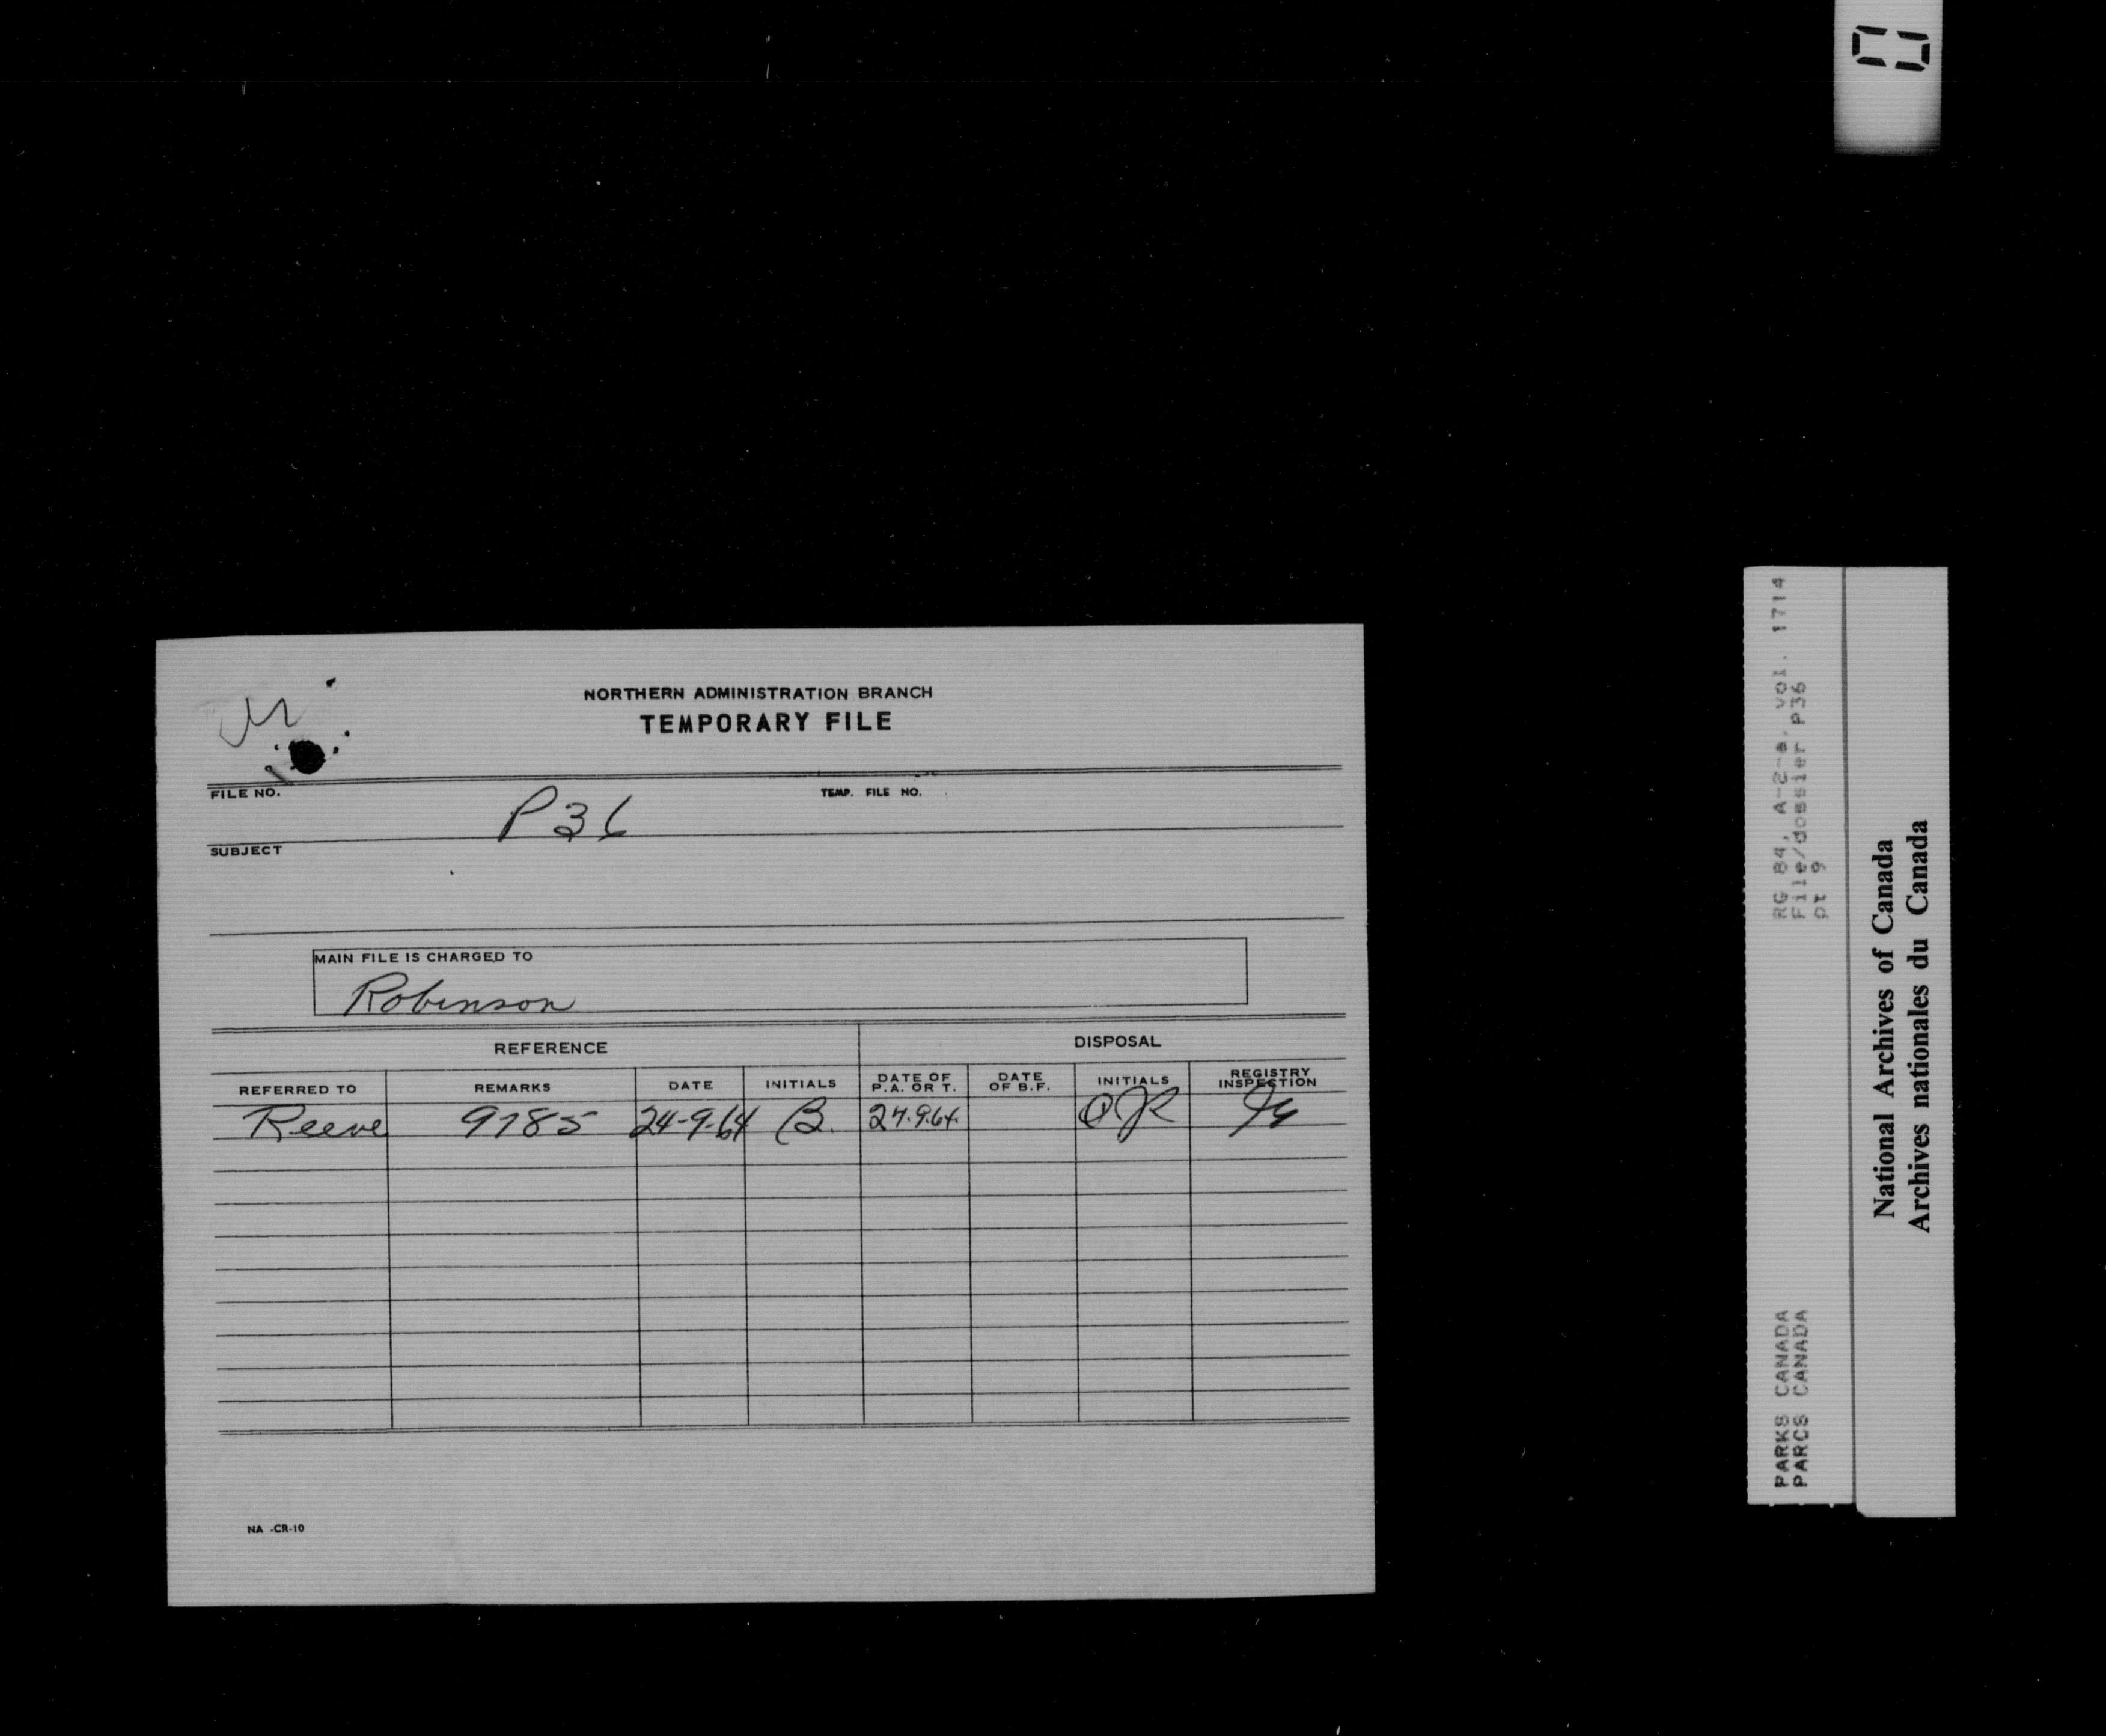 NORTHERN ADMINISTRATION BRANCH
TEMPORARY FILE
FILE NO. P36 TEMP. FILE NO.
SUBJECT
MAIN FILE IS CHARGED TO
Robinson
REFERENCE DISPOSAL
REFERRED TO REMARKS DATE INITIALS DATE OF P.A. OR T. DATE OF B.F. INITIALS REGISTRY INSPECTION
Reeve 9785 24-9-64 B. 24.9.64.
NA -CR-10
RG 84, A-2-a, vol. 1714
File/dossier P36
pt 9
PARKS CANADA
PARCS CANADA
National Archives of Canada
Archives nationales du Canada